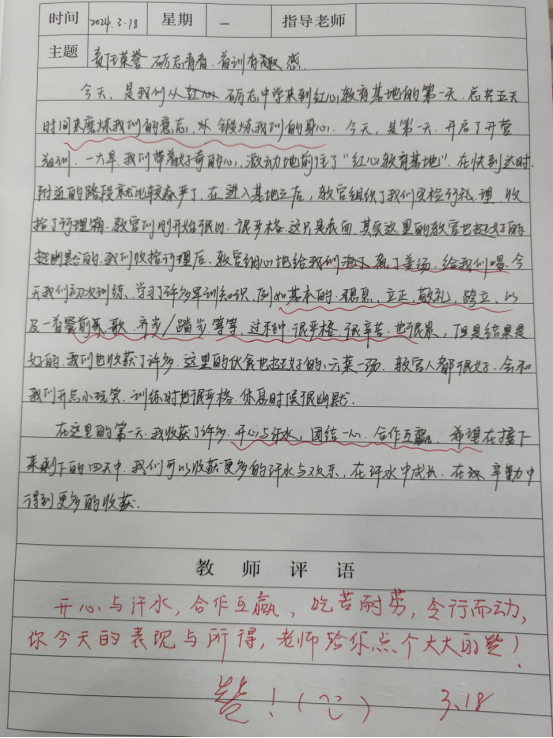 时间 2024.3.18 星期 一 指导老师
主题 责任荣誉 砺志青春.首训有趣 感
今天，是我们从红心砺志中学来到红心教育基地的第一天.总共五天
时间来磨炼我们的意志，从锻炼我们的身心.今天，是第一天.开启了开营
一大早.我们带着好奇的心，激动地前往了"红心教育基地".在快到达时.
附近的路段就比较严了.在进入基地之后，教官组织了我们安检行礼.理.收
拾了行理箱.教官们刚开始很凶.很严格.这只是表面.其实这里的教官也挺好的
挺幽默的.我们收拾行理后.教官细心地给我们泡了姜汤.给我们喝.今
天我们初次训练、学习了许多军训知识，例如基本的.稍息，立正，敬礼，跨立、以
及一首军歌、齐步/踏步等等，过程中很严格.很辛苦.也很累，但是结果是
好的.我们也收获了许多.这里的伙食也挺好的、六菜一汤.教官人都很好.会和
我们开点小玩笑.训练时也很严格.休息时候很幽默.
在这里的第一天.我收获了许多.开心与汗水，团结一心.合作互赢.希望在接下
来剩下的四天中.我们可以收获更多的汗水与欢乐，在汗水中成长.在辛勤中
得到更多的收获.
教师评语
开心与汗水，合作互赢，吃苦耐劳，令行而动，
你今天的表现与所得，老师给你点个大大的赞！
赞！ 3.18